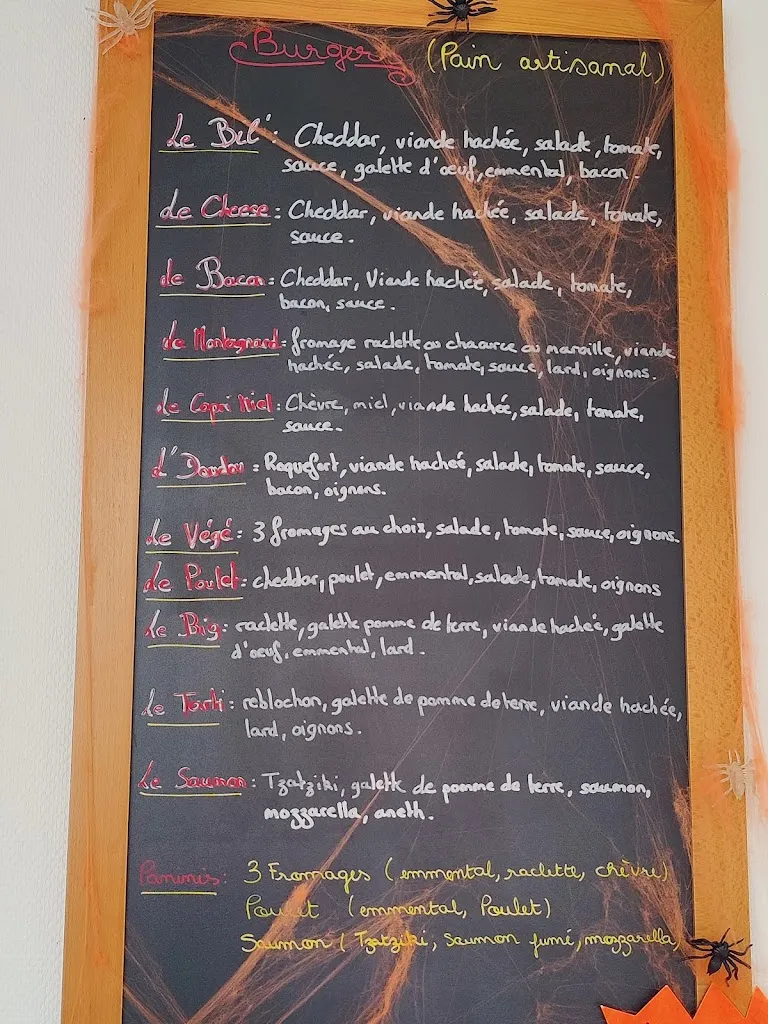 Burgers (Pain artisanal)
Le Bil' : Cheddar, viande hachée, salade, tomate,
sauce, galette d'œuf, emmental, bacon.
Le Cheese : Cheddar, viande hachée, salade, tomate,
sauce.
Le Bacon : Cheddar, Viande hachée, salade, tomate,
bacon, sauce.
Le Montagnard : fromage raclette ou chaource ou maroille, viande
hachée, salade, tomate, sauce, lard, oignons.
Le Capri Miel : Chèvre, miel, viande hachée, salade, tomate,
sauce.
L'Doudou : Roquefort, viande hachée, salade, tomate, sauce,
bacon, oignons.
Le Végé : 3 fromages au choix, salade, tomate, sauce, oignons.
Le Poulet : cheddar, poulet, emmental, salade, tomate, oignons
Le Big : raclette, galette pomme de terre, viande hachée, galette
d'œuf, emmental, lard.
Le Tarti : reblochon, galette de pomme de terre, viande hachée,
lard, oignons.
Le Saumon : Tzatziki, galette de pomme de terre, saumon,
mozzarella, aneth.
Paninis : 3 Fromages (emmental, raclette, chèvre)
Poulet (emmental, Poulet)
Saumon (Tzatziki, Saumon fumé, mozzarella)